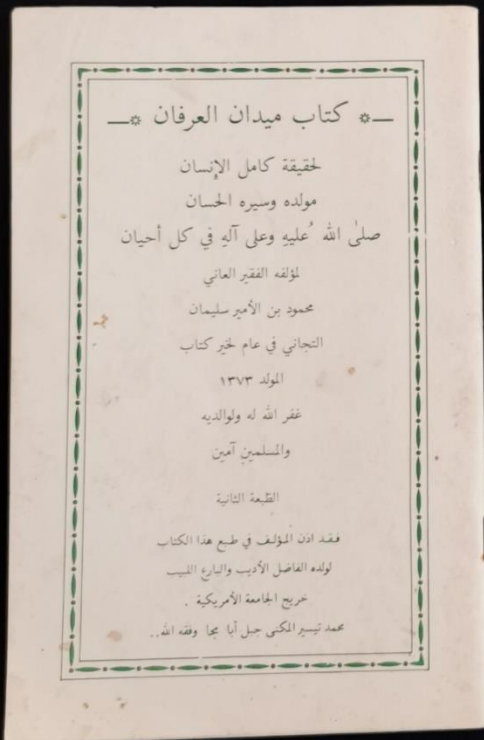 كتاب ميدان العرفان
لحقيقة كامل الإنسان
مولده وسيره الحسان
صلى الله عليهِ وعلى آلهِ في كل أحيان
لمؤلفه الفقير العاني
محمود بن الأمير سليمان
التجاني في عام لخير كتاب
المولد ١٣٧٣
غفر الله له ولوالديه
والمسلمين آمين
الطبعة الثانية
فقد اذن المؤلف في طبع هذا الكتاب
لولده الفاضل الأديب والبارع اللبيب
خريج الجامعة الأمريكية .
محمد تيسير المكنى جبل أبا مجا وفقه الله..